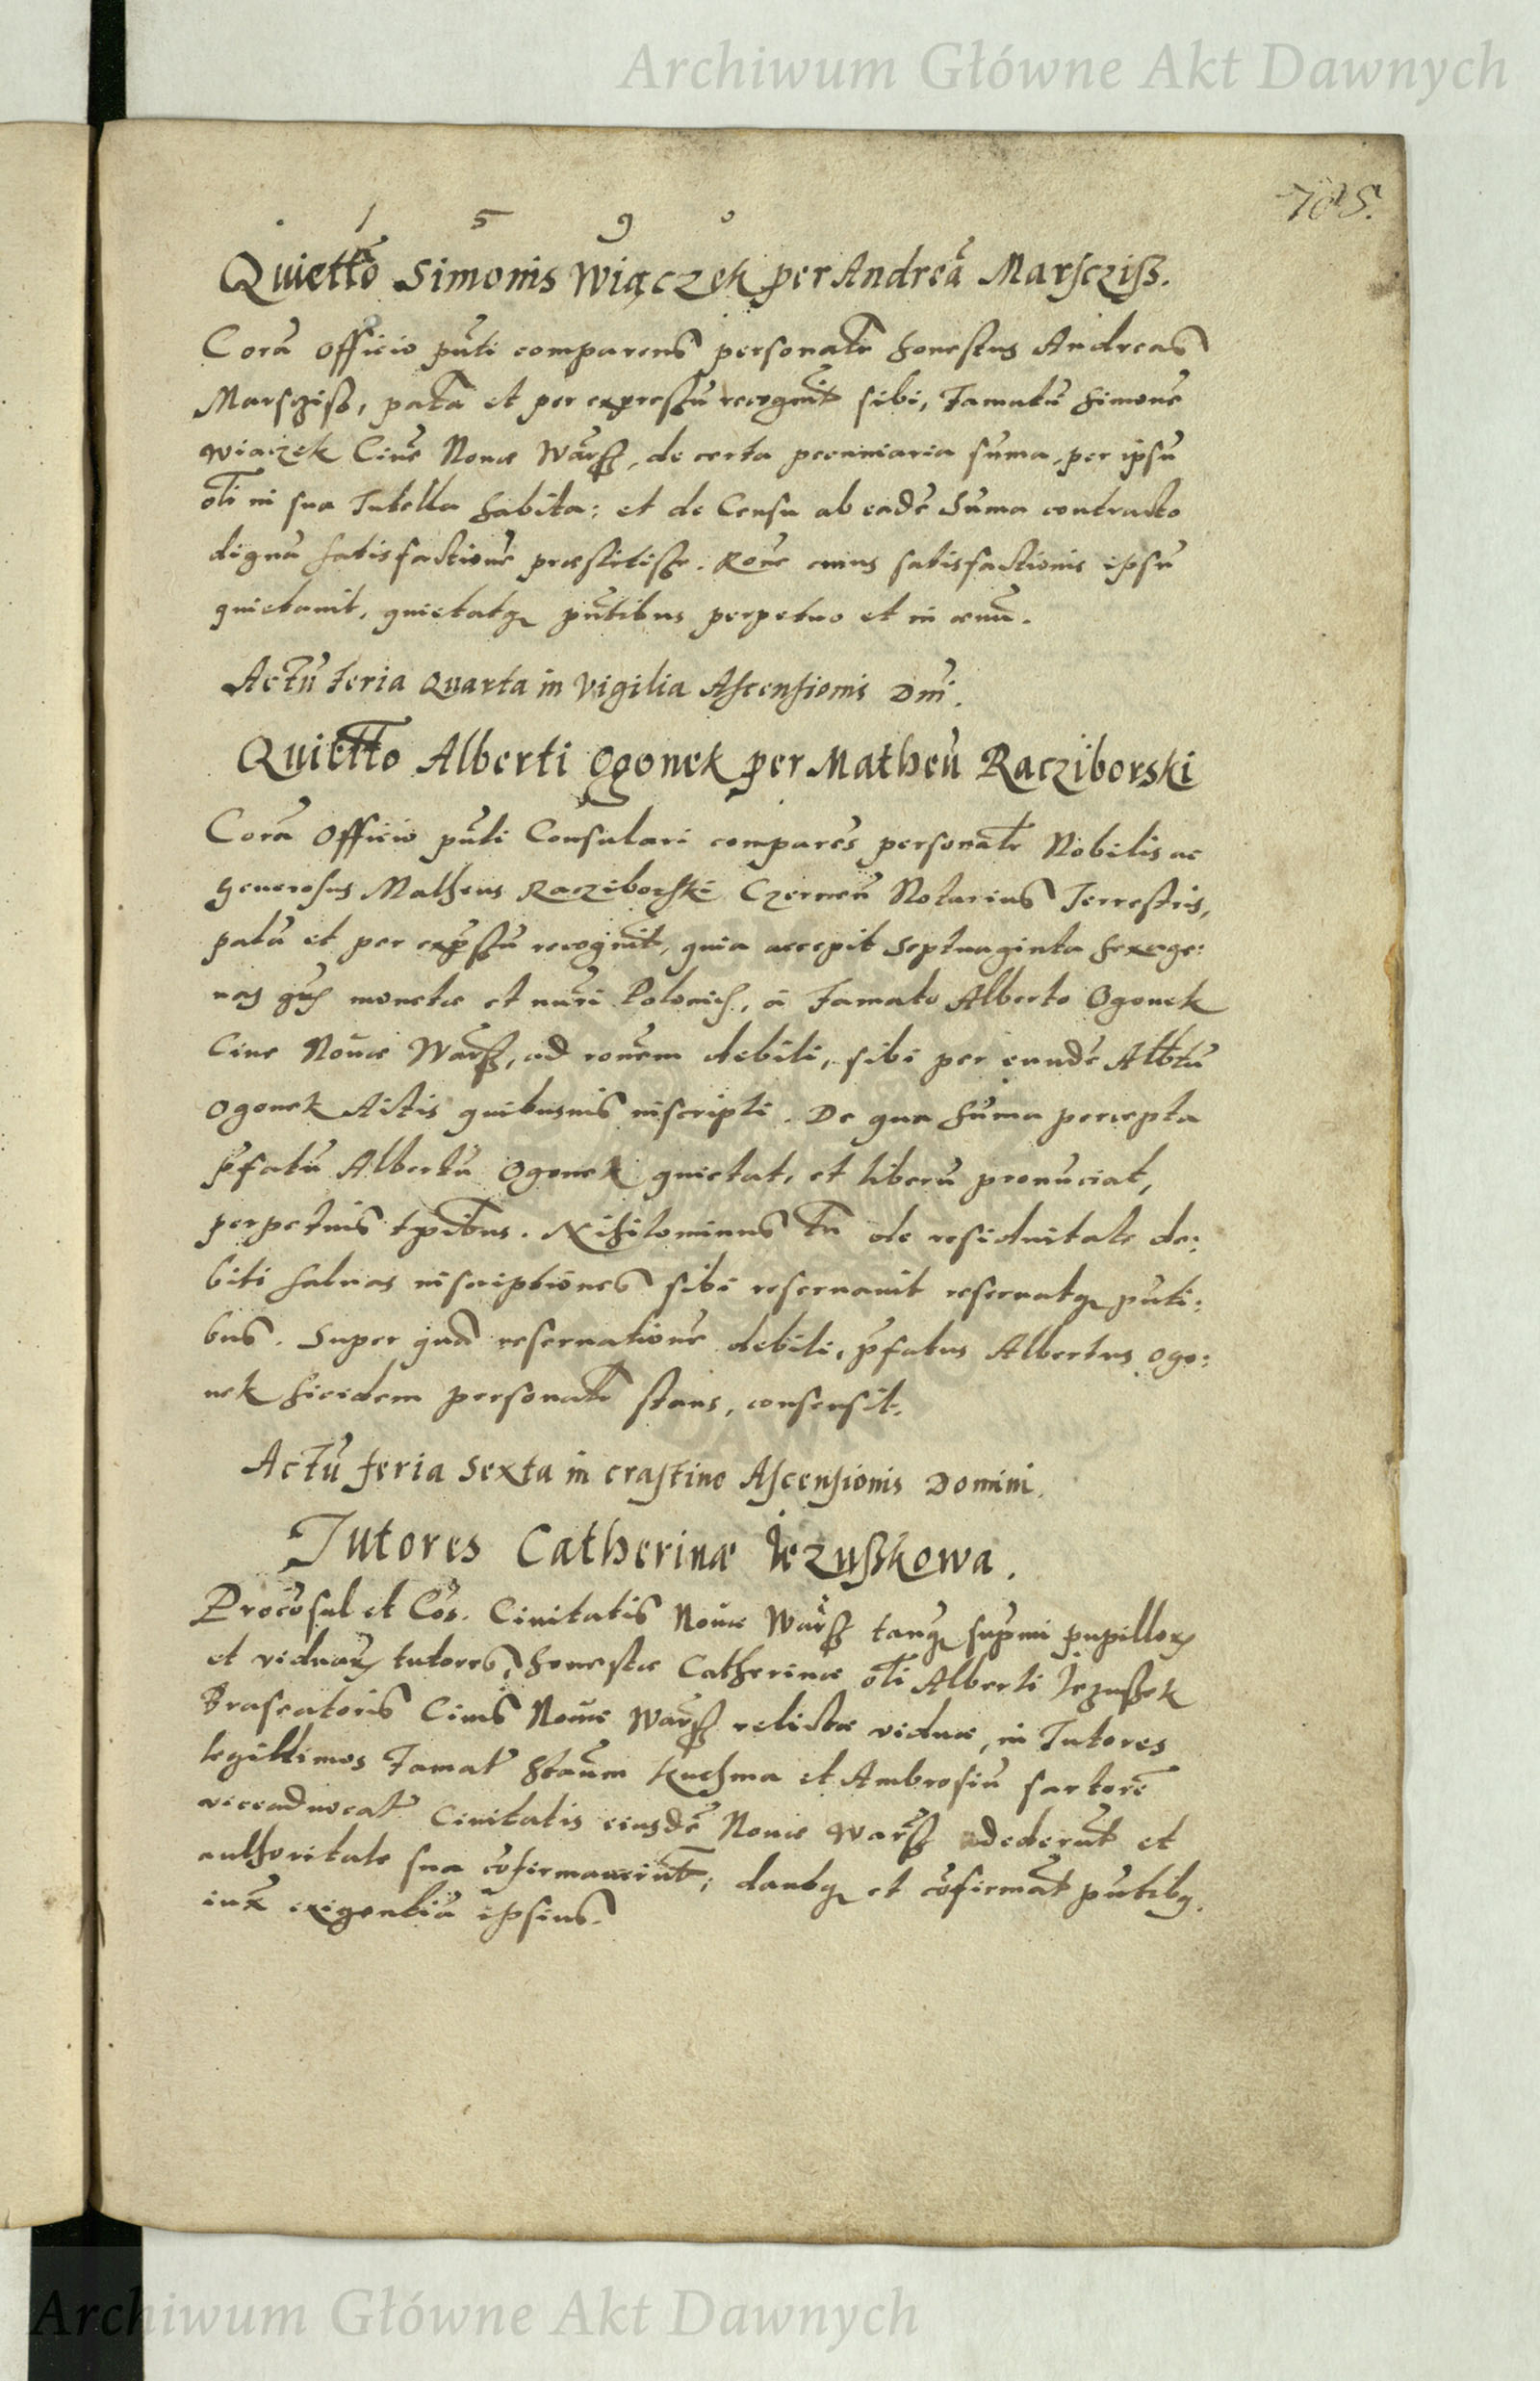 Archiwum Główne Akt Dawnych
705.
1 5 9 0
Quiettõ Simonis Wiączek per Andreã Marscziß.
Corã Officio pñti comparens personalr honestus Andreas
Marscziß, palã et per expressũ recognit sibi, Famatũ Simone
Wiączek Cive Novæ Warß, de certa pecuniaria suma, per ipsũ
oli in sua Tutella habita: et de Censu ab eadẽ Suma contracto
dignã satisfactione præstitisse. Rone cuius satisfactionis ipsũ
quietavit, quietatq pñtibus perpetuo et in ævũ.
Actũ feria Quarta in Vigilia Ascensionis Dni.
Quietto Alberti Ogonek per Matheũ Racziborski
Corã Officio pñti Consulari comparẽs personalr Nobilis ac
Generosus Matheus Racziborski Czerneñ Notarius Terrestris,
palã et per expssũ recognit, quia accepit Septuaginta sexage:
nas monetæ et nũri Polonich, a Famato Alberto Ogonek
Cive Novæ Warß, ad ronem debiti, sibi per eundẽ Albtũ
Ogonek Actis quibusvis inscripti. De qua suma percepta
pfatũ Albertũ Ogonek quietat, et liberũ pronũciat,
perpetuis tpibus. Nihilominus tñ de residuitate de:
biti salvas inscriptiones sibi reservavit reservatq pñti:
bus. Super quã reservatione debiti, pfatus Albertus Ogo:
nek hicidem personalr stans, consensit.
Actũ feria Sexta in crastino Ascensionis Domini.
Tutores Catherinæ Jezuszkowa.
Procõsul et Cõs. Civitatis Novæ Warß tanq supmi pupillorũ
et viduarũ tutores, honestæ Catherinæ oli Alberti Jezußek
Braseatoris Civis Novæ Warß relictæ viduæ, in Tutores
legittimos Famat Staũm Kuchma et Ambrosiũ sartorẽ
viceadvocat Civitatis eiusdẽ Novæ Warß adederũt et
authoritate sua cõfirmaverũt; dantq et cõfirmãt pñtibq.
iux exigentiã ipsius.
Archiwum Główne Akt Dawnych